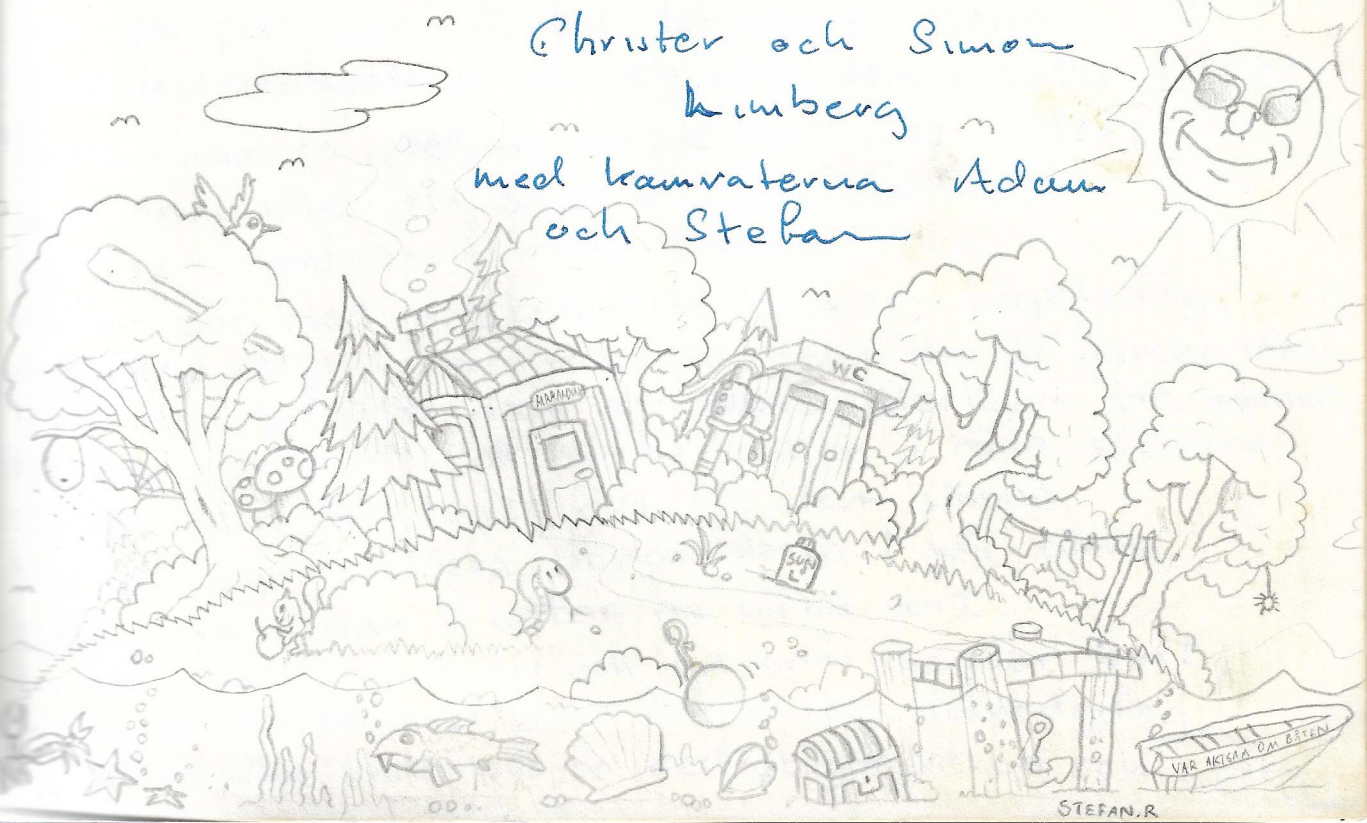 Christer och Simon
med kamraterna Adam
och Stefan
WC
SUN
L
VAR AKTSAM OM BÅTEN
STEFAN.R